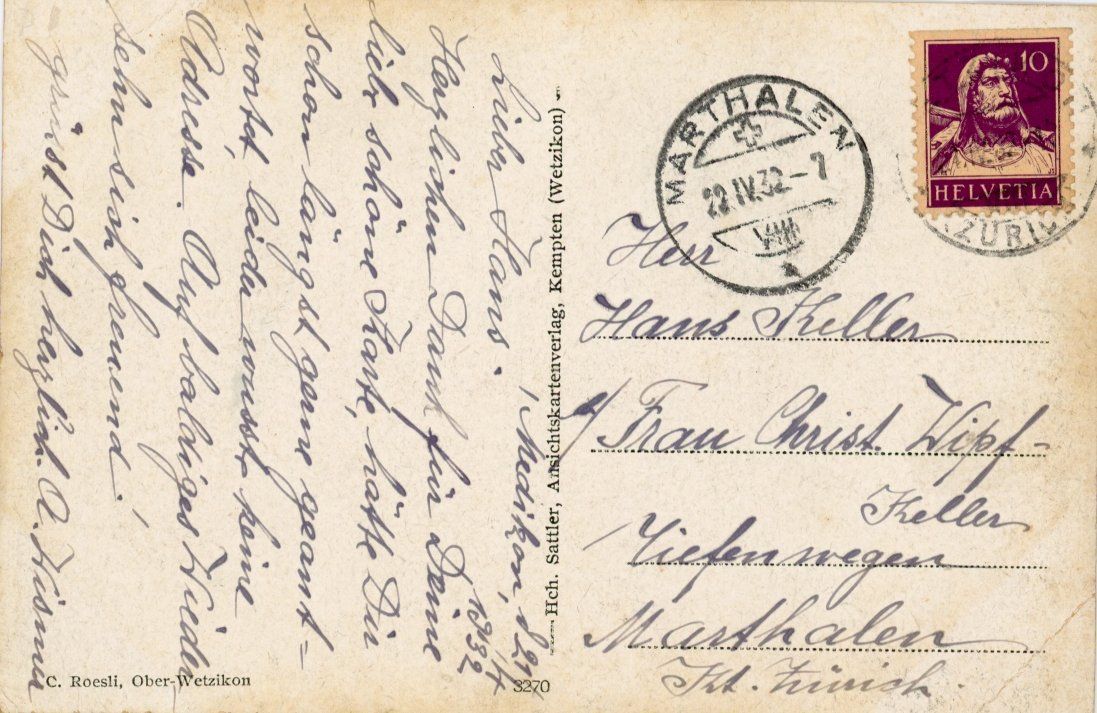 Medikon, d. 21/4
1932
Lieber Hans.
Herzlichen Dank für Deine
liebe schöne Karte, hätte Dir
schon längst gerne geant=
wortet, leider wusste keine
Adresse. Auf baldiges Wieder
sehn sich freuend,
grüsst Dich herzlich. A.
Hch. Sattler, Ansichtskartenverlag, Kempten (Wetzikon)
C. Roesli, Ober-Wetzikon
3270
MARTHALEN
22.IV.32–7
VIII
10
HELVETIA
ZÜRICH
Herr
Hans Keller
Frau Christ. Wipf-
Keller
Tiefenwegen
Marthalen
Kt. Zürich.